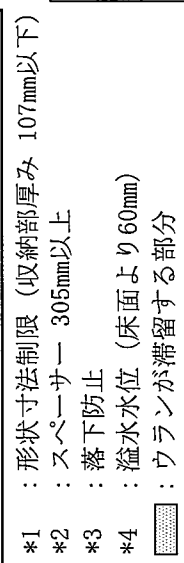 *1 : 形状寸法制限 (収納部厚み 107mm以下)
*2 : スペーサー 305mm以上
*3 : 落下防止
*4 : 溢水水位 (床面より60mm)
: ウランが滞留する部分